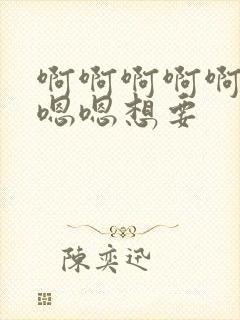 啊啊啊啊啊
嗯嗯想要
陈奕迅